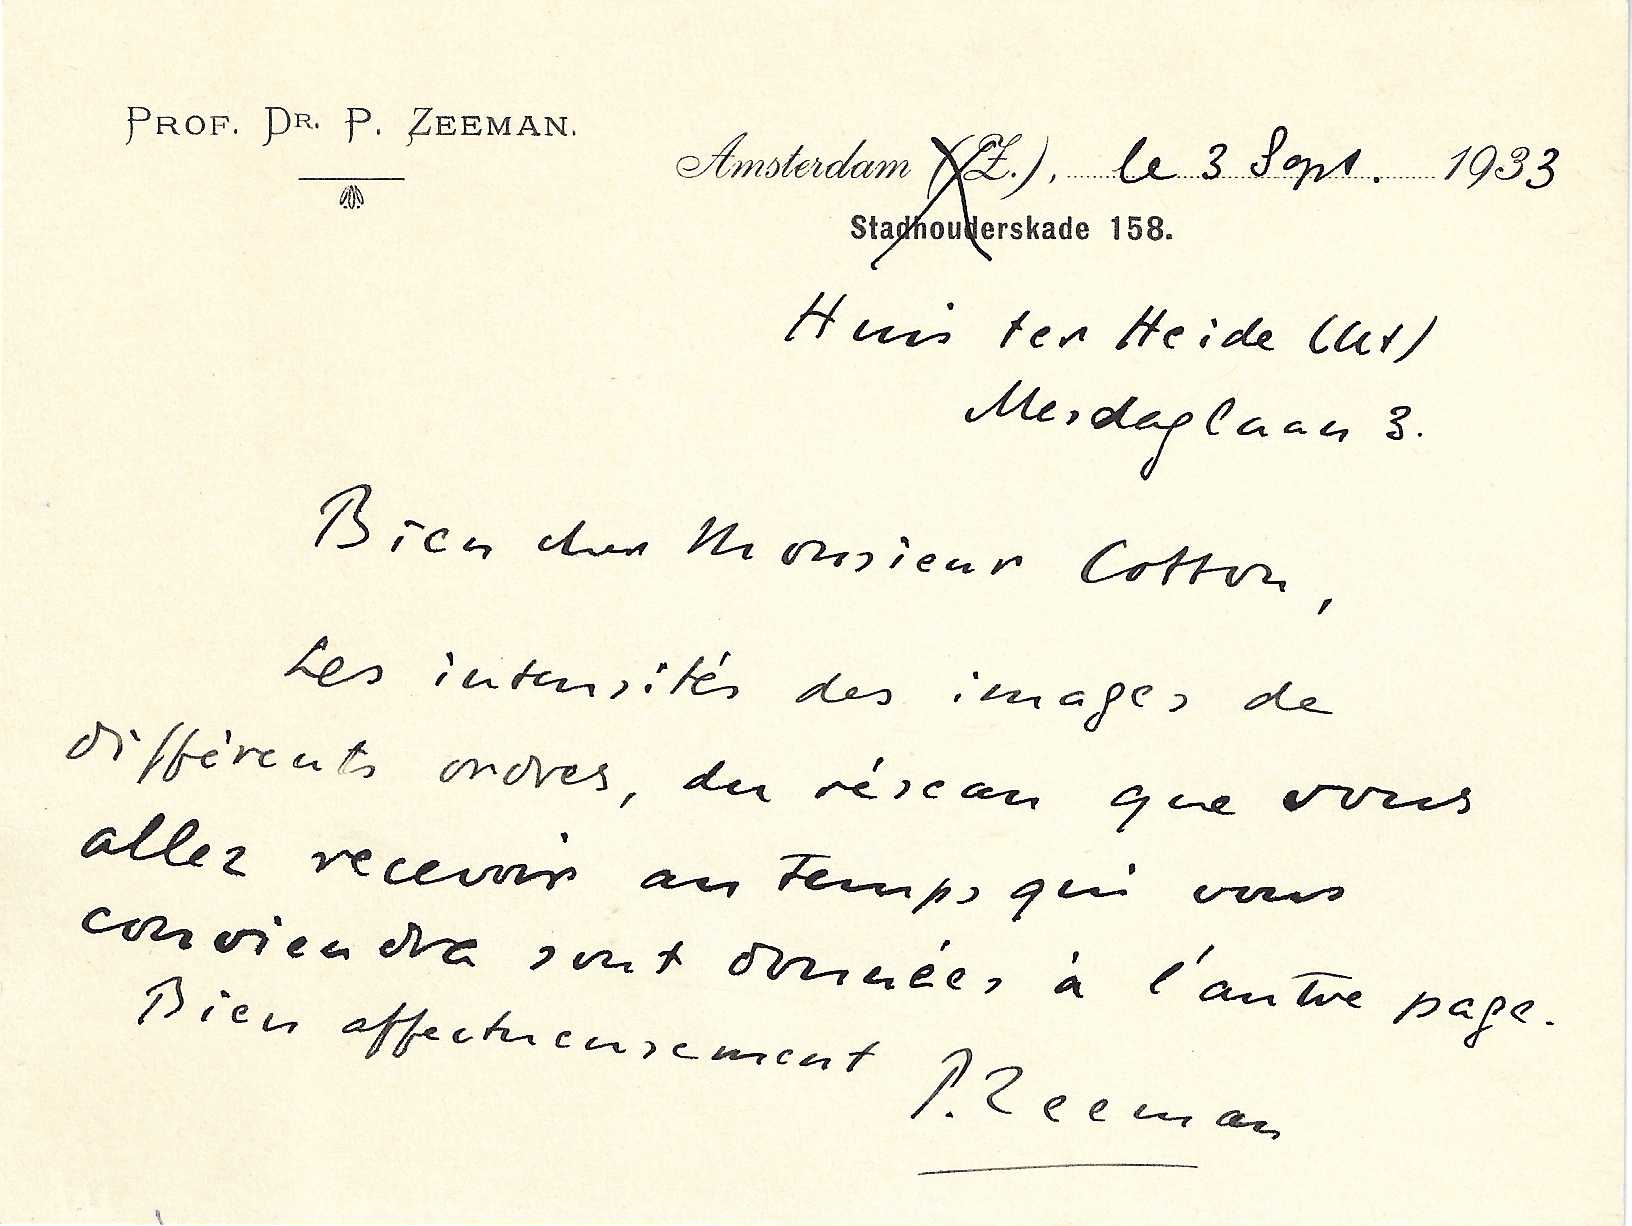 PROF. DR. P. ZEEMAN.
Amsterdam (Z.), le 3 Sept. 1933
Stadhouderskade 158.
Huis ter Heide (Ut)
Mesdaglaan 3.
Bien cher Monsieur Cotton,
Les intensités des images de
différents ordres, du réseau que vous
allez recevoir au temps qui vous
conviendra sont données à l'autre page.
Bien affectueusement
P. Zeeman